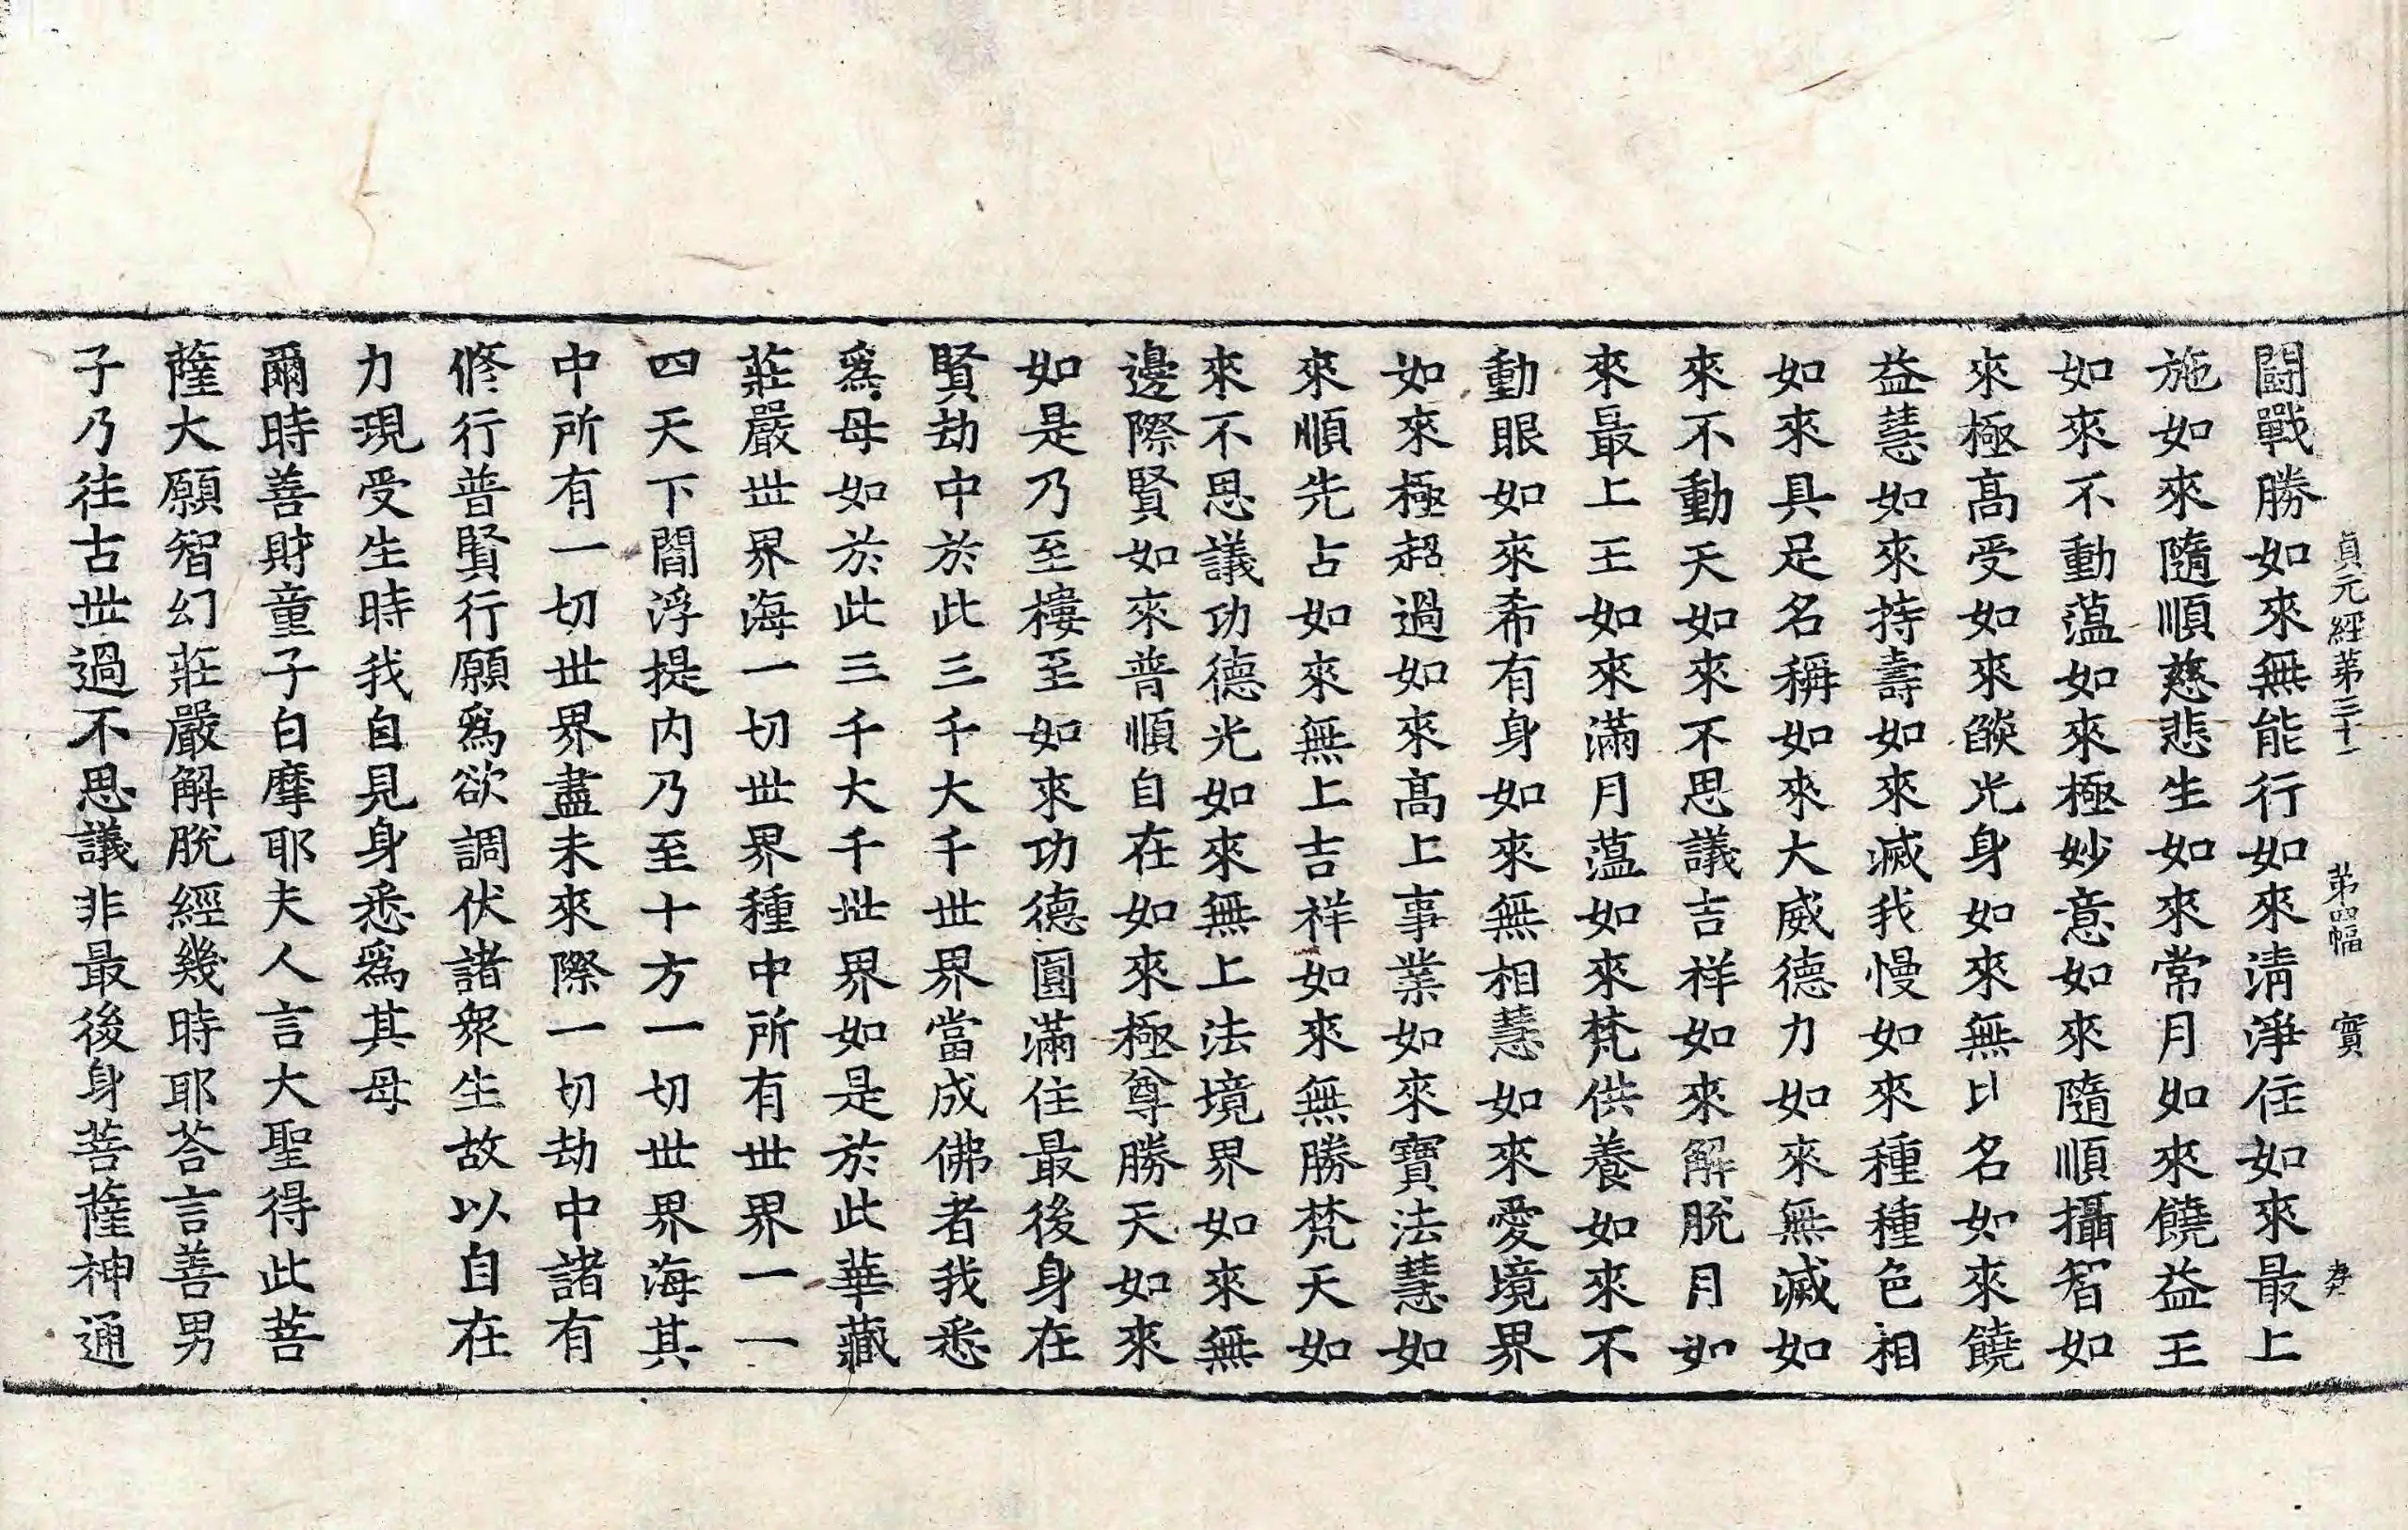 貞元經第三十一 第四幅 寶
鬪戰勝如來無能行如來淸淨住如來最上
施如來隨順慈悲生如來常月如來饒益王
如來不動蕰如來極妙意如來隨順攝智如
來極高受如來燄光身如來無比名如來饒
益慧如來持壽如來滅我慢如來種種色相
如來具足名稱如來大威德力如來無滅如
來不動天如來不思議吉祥如來解脫月如
來最上王如來滿月蕰如來梵供養如來不
動眼如來希有身如來無相慧如來愛境界
如來極超過如來高上事業如來寶法慧如
來順先占如來無上吉祥如來無勝梵天如
來不思議功德光如來無上法境界如來無
邊際賢如來普順自在如來極尊勝天如來
如是乃至樓至如來功德圓滿住最後身在
賢劫中於此三千大千世界當成佛者我悉
爲母如於此三千大千世界如是於此華藏
莊嚴世界海一切世界種中所有世界一一
四天下閻浮提内乃至十方一切世界海其
中所有一切世界盡未來際一切劫中諸有
修行普賢行願爲欲調伏諸衆生故以自在
力現受生時我自見身悉爲其母
爾時善財童子白摩耶夫人言大聖得此菩
薩大願智幻莊嚴解脫經幾時耶荅言善男
子乃往古世過不思議非最後身菩薩神通